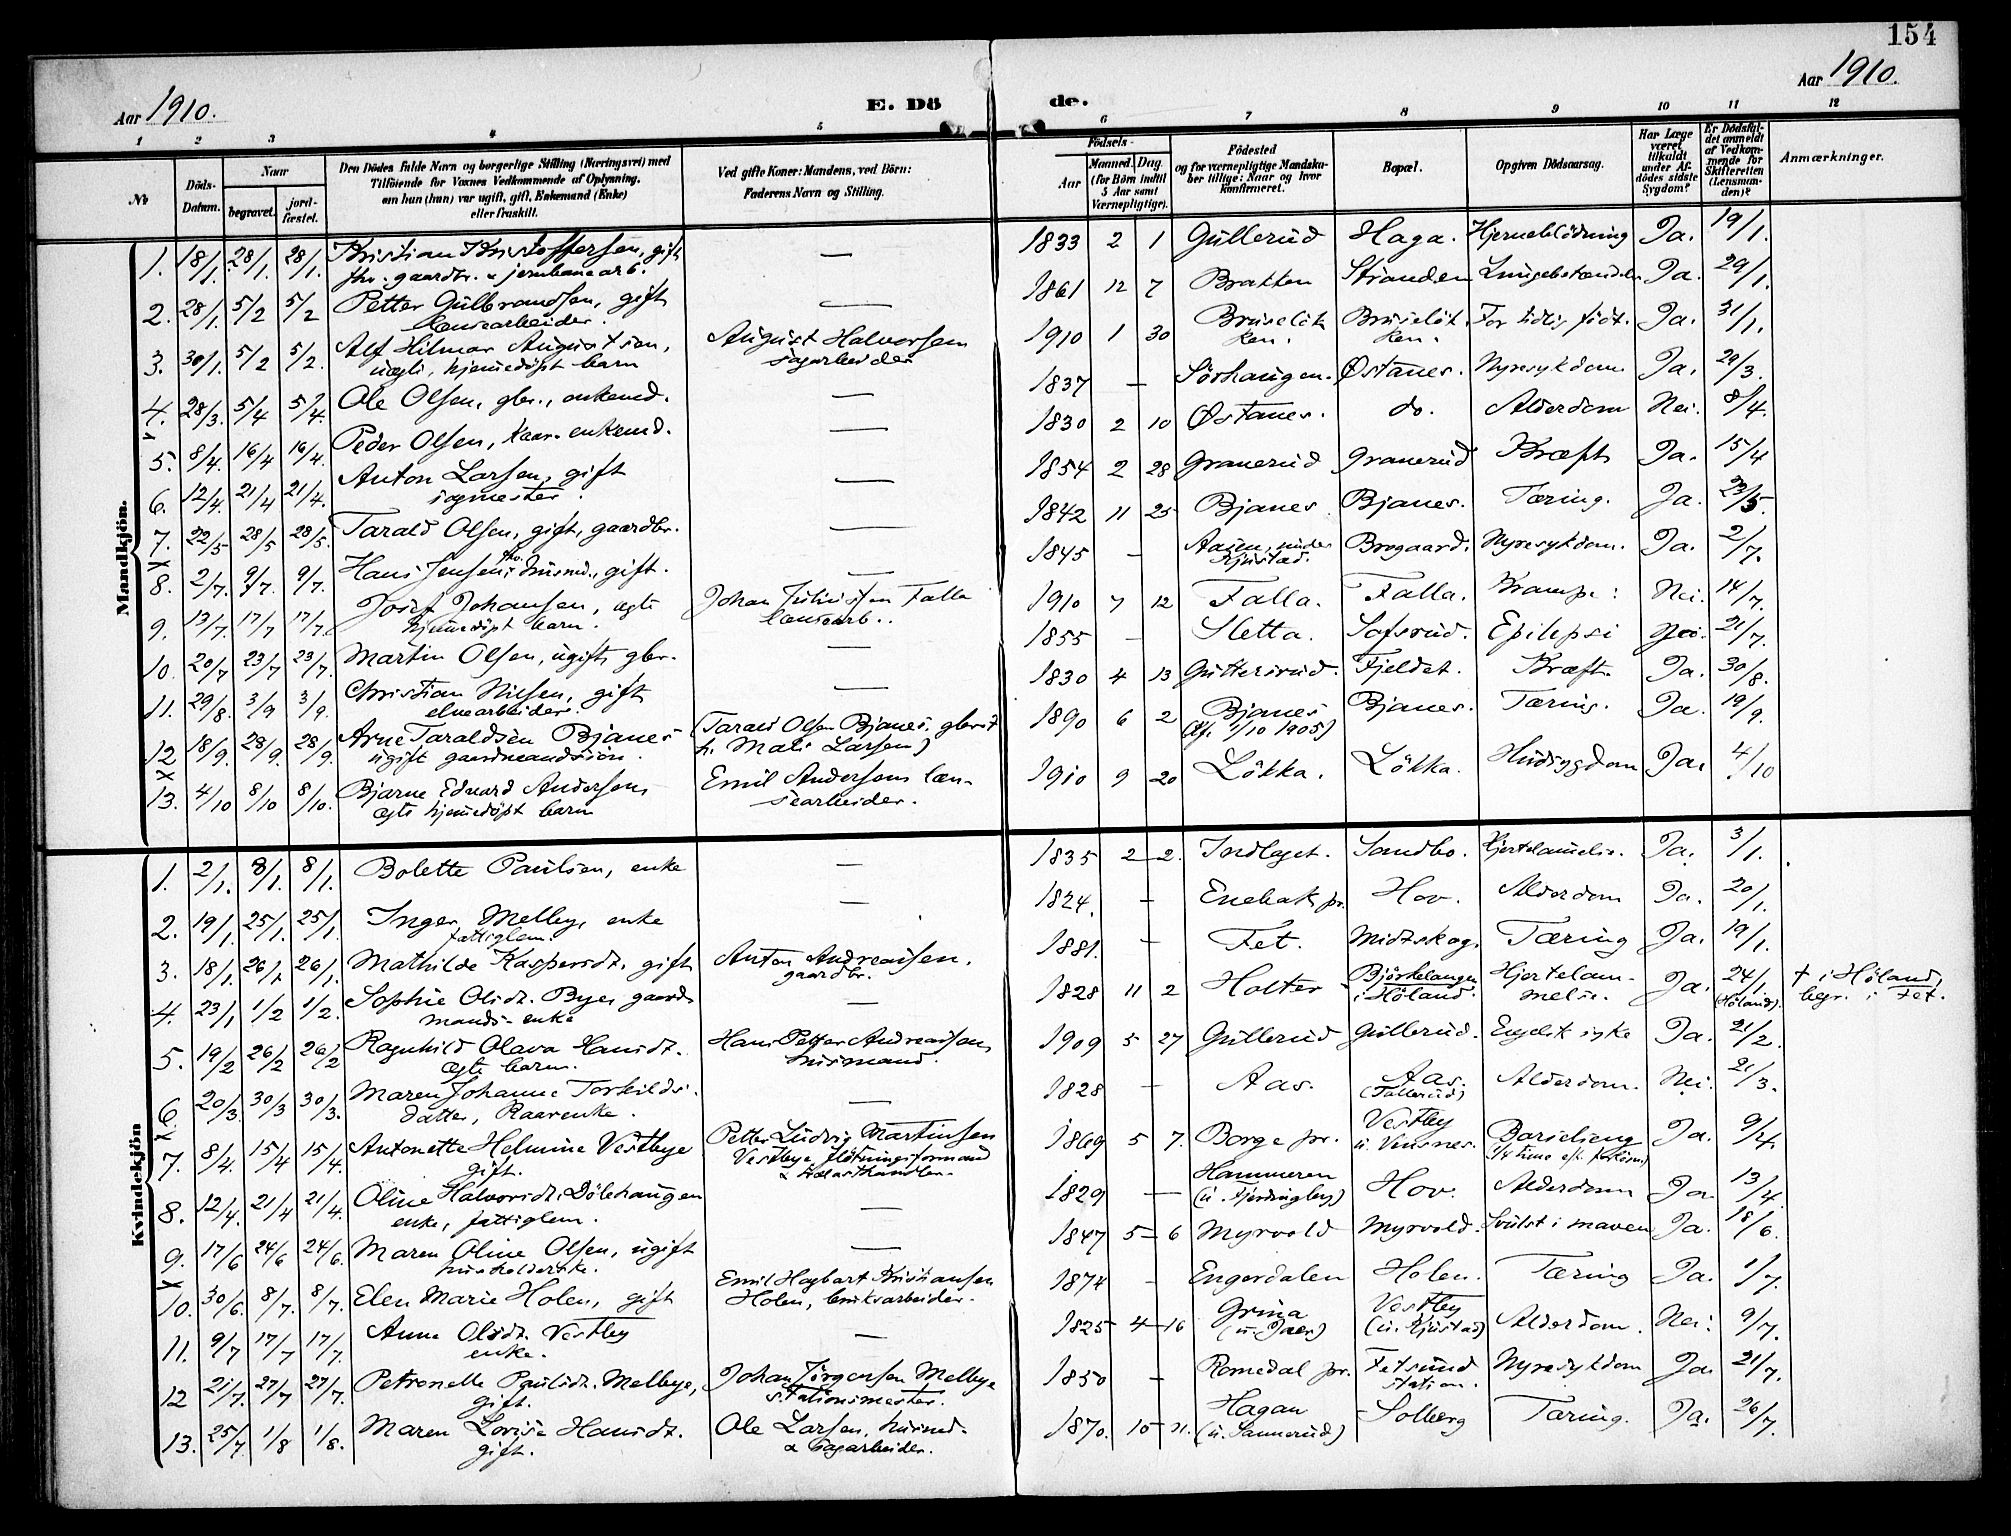 154
Aar 1910.
E. Dö de.
Aar 1910.
1 2 3 4 5 6 7 8 9 10 11 12
No
Döds-Datum.
Naar
begravet. jord-fæstet.
Den Dödes fulde Navn og borgerlige Stilling (Næringsvei) med
Tilföiende for Voxnes Vedkommende af Oplysning,
om han (hun) var ugift, gift, Enkemand (Enke)
eller fraskilt.
Ved gifte Koner: Mandens, ved Börn:
Faderens Navn og Stilling.
Födsels-
Aar
Maaned. Dag.
(for Börn indtil
5 Aar samt
Værnepligtige).
Födested
og for værnepligtige Mandska-
ber tillige: Naar og hvor
konfirmeret.
Bopæl.
Opgiven Dödsaarsag.
Har Læge
været
tilkaldt
under Af-
dödes sidste
Sygdom?
Er Dödsfal-
det anmeldt
af Vedkom-
mende for
Skifteretten
(Lensman-
den)?
Anmærkninger.
Mandkjön.
1. 18/1. 28/1. 28/1. Kristian Kristoffersen, gift — 1833 2 1 Gullerud Haga. Hjerneblödning Ja. 19/1.
fhv. gaardbr. & jernbanearb.
2. 28/1. 5/2 5/2 Petter Gulbrandsen, gift — 1861 12 7 Bratten Stranden Ja. 29/1.
lænsearbeider.
3. 30/1. 5/2 5/2. Alf Hilmar Augustson, August Halvorsen 1910 1 30 For tidlig födt. Ja. 31/1.
uægte, hjemmedöpt barn sagarbeider
4. 28/3. 5/4 5/4. Ole Olsen, gbr., enkemd. — 1837 — Sörhaugen. Østanes. Nyresykdom Ja. 29/3.
5. 8/4. 16/4 16/4. Peder Olsen, kaar-enkemd. — 1830 2 10 Østanes. do. Alderdom Nei. 8/4.
6. 12/4. 21/4 21/4. Anton Larsen, gift — 1854 2 28 Granerud Granerud Kræft Ja. 15/4
sagmester.
7. 22/5 28/5 28/5. Tarald Olsen, gift, gaardbr. — 1842 11 25 Bjanes Bjanes. Tæring. Ja. 23/5.
8. 2/7. 9/7. 9/7. Hans Jensen, fhv. husmd., gift. — 1845 — Aasen, under Kjustad. Brogaard. Nyresykdom. Ja. 2/7.
9. 13/7. 17/7 17/7. Josef Johansen, ægte Johan Falla 1910 7 12 Falla. Falla. Krampe. Nei. 14/7.
hjemmedöpt barn. lænsearb.
10. 20/7 23/7 23/7. Martin Olsen, ugift, gbr. — 1855 — Sletta. Epilepsi 21/7.
11. 29/8. 3/9 3/9. Christian Nilsen, gift — 1830 4 13 Guttersrud. Fjeldet. Kræft. Ja. 30/8.
12 18/9. 28/9. 28/9. Arne Taraldsen Bjanes (Tarald Olsen Bjanes, gbr. & 1890 6 2 Bjanes Bjanes. Tæring. Ja. 19/9.
ugift gaardmandssön. h. Mali Larsen) 1/10 1905)
13. 4/10 8/10 8/10. Bjarne Edvard Andersen, Emil Andersen læn- 1910 9 20 Lökka. Lökka. Ja. 4/10
ægte hjemmedöpt barn searbeider.
Kvindekjön
1. 2/1. 8/1. 8/1. Bolette Paulsen, enke — 1835 2 2. Indlaget. Sandbo. Ja. 3/1.
2. 19/1. 25/1. 25/1. Inger Melby, enke — 1824. — Enebak pr. Hov. Alderdom Ja. 20/1.
fattiglem.
3. 18/1. 26/1 26/1. Mathilde Kaspersdt., gift Anton Andreassen. 1881. — Fet. Midtskog. Tæring Ja. 19/1.
gaardbr.
4. 23/1 1/2 1/2. Sophie Olsdt. Bye, gaard- — 1828 11 2 Holter Björkelangen i Höland. Hjertelam-melse. Ja. 24/1. (Höland). † i Höland,
mands-enke begr. i Fet.
5. 19/2 26/2 26/2 Ragnhild Olava Hansdt. Hans Petter Andreassen 1909 5 27 Gullerud Gullerud. Engelsk syke Ja. 21/2.
ægte barn. husmand.
6. 20/3. 30/3 30/3. Maren Johanne Torkilds- — 1828 — Aas. Aas. (Fallerud) Alderdom. Nei. 21/3.
datter, Kaarenke.
7. 8/4. 15/4 15/4. Antonette Helmine Vestbye Petter Ludvig Martinsen 1869 5 7. Borge pr. Vestby Barselseng Ja. 9/4.
gift. Vestbye, flötningsformand
8. 12/4. 21/4 21/4. Oline Halvorsdt. Dölehaugen — 1829 — Hammeren (u. Fjerdingby) Hov. Alderdom Ja 13/4.
enke, fattiglem.
9. 17/6 24/6 24/6. Maren Oline Olsen, ugift — 1847 5 6 Myrvold Myrvold. Svulst i maven Ja. 18/6.
husholderske.
10. 30/6. 8/7. 8/7. Elen Marie Holen, gift Emil Hagbart Kristiansen 1874 — Engerdalen Holen. Tæring Ja. 1/7.
Holen, bruksarbeider.
11. 9/7 17/7 17/7. Anne Olsdt. Vestby — 1825 4 16 Vestby (u. Kjustad) Alderdom. Nei. 9/7.
enke.
12 21/7. 27/7 27/7. Petronelle Paulsdt. Melbye, Johan Jörgensen Melbye 1850 — Romedal pr. Fetsund station. Nyresykdom Ja. 21/7.
gift. stationsmester.
13. 25/7. 1/8 1/8. Maren Lovise Hansdt. Ole Larsen, husmd. 1870. 10 Hagan Solberg Tæring. Ja. 26/7.
gift. & sagarbeider. (u. Sannerud)